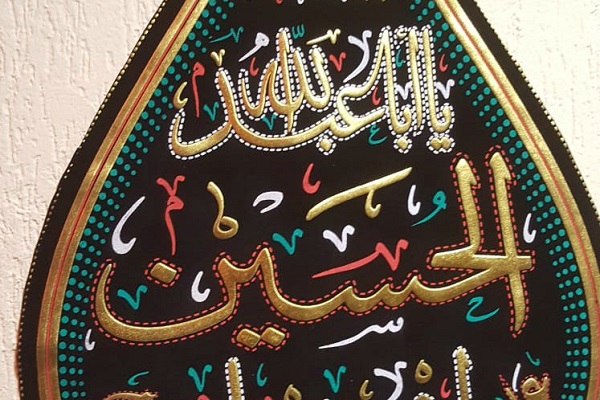 يا أبا عبد الله
الحسين